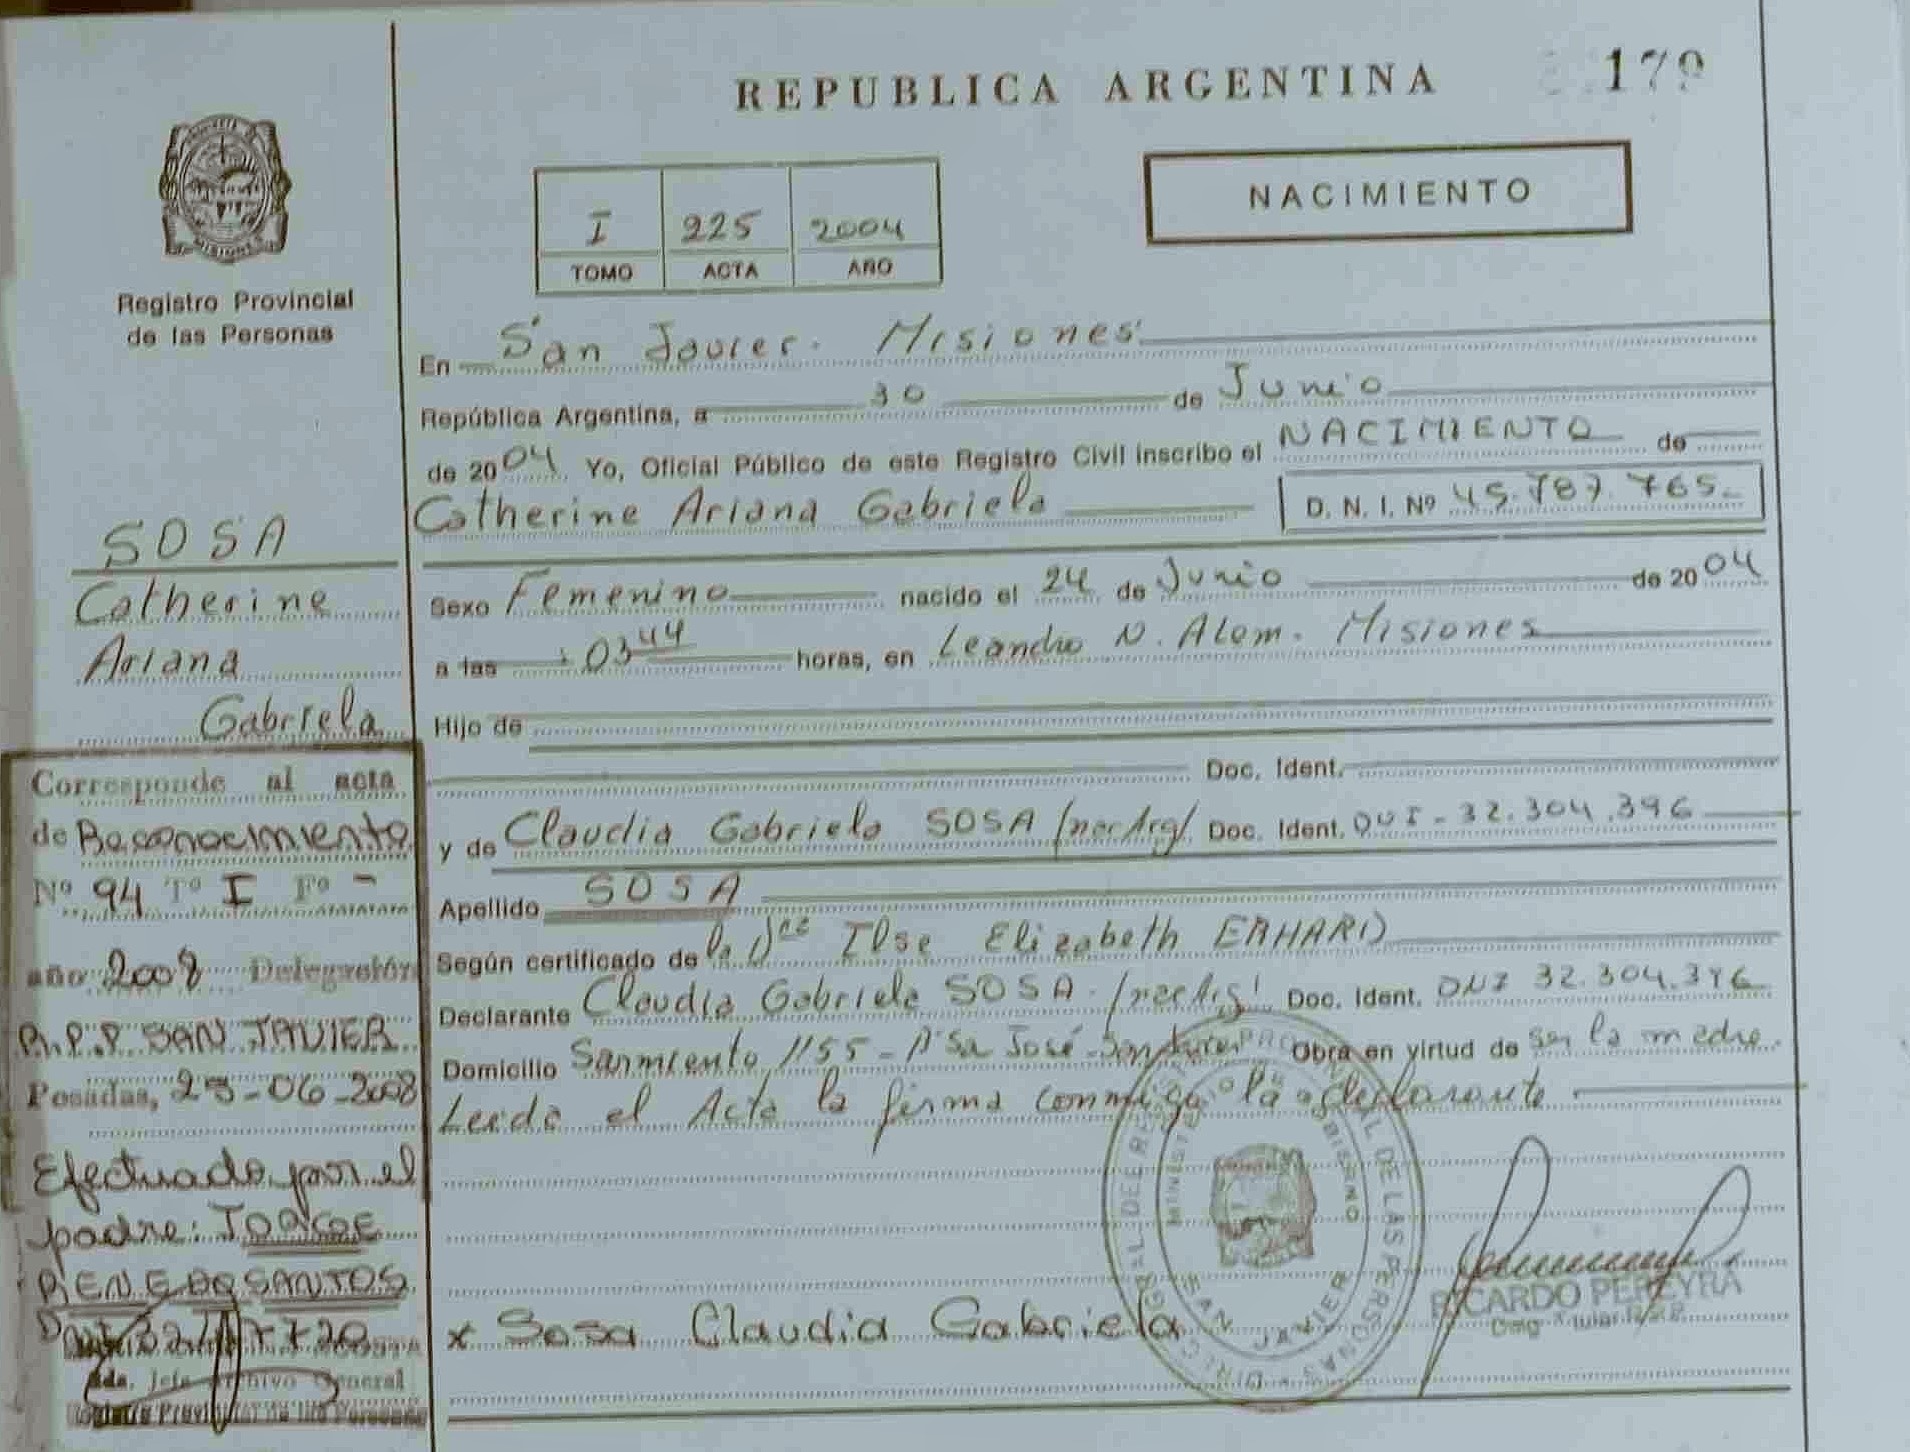 REPUBLICA ARGENTINA
179
NACIMIENTO
I 225 2004
TOMO ACTA AÑO
Registro Provincial
de las Personas
SOSA
Catherine
Ariana
Gabriela
Corresponde al acta
de Reconocimiento
Nº 94 Tº I Fº -
año 2008 Delegación
R.P.P SAN JAVIER
Posadas, 23-06-2008
Efectuado por el
padre: JORGE
RENE DO SANTOS
Jefe Archivo General
Registro Provincial de las Personas
En San Javier. Misiones
República Argentina, a 30 de Junio
de 2004 Yo, Oficial Público de este Registro Civil inscribo el NACIMIENTO de
Catherine Ariana Gabriela D. N. I. Nº 45.787.765
Sexo Femenino nacido el 24 de Junio de 2004
a las 03 44 horas, en Leandro N. Alem. Misiones
Hijo de
Doc. Ident.
y de Claudia Gabriela SOSA /nac Arg/ Doc. Ident. DNI - 32.304.396
Apellido SOSA
Según certificado de la Dra Ilse Elizabeth ERHARD
Declarante Claudia Gabriela SOSA - /nac Arg/ Doc. Ident. DNI 32.304.396
Domicilio Sarmiento 1155 - José - San Javier Obra en virtud de ser la madre
Leida el Acta la firma conmigo la declarante
x Sosa Claudia Gabriela
MINISTERIO GOBIERNO
SAN JAVIER
RICARDO PEREYRA